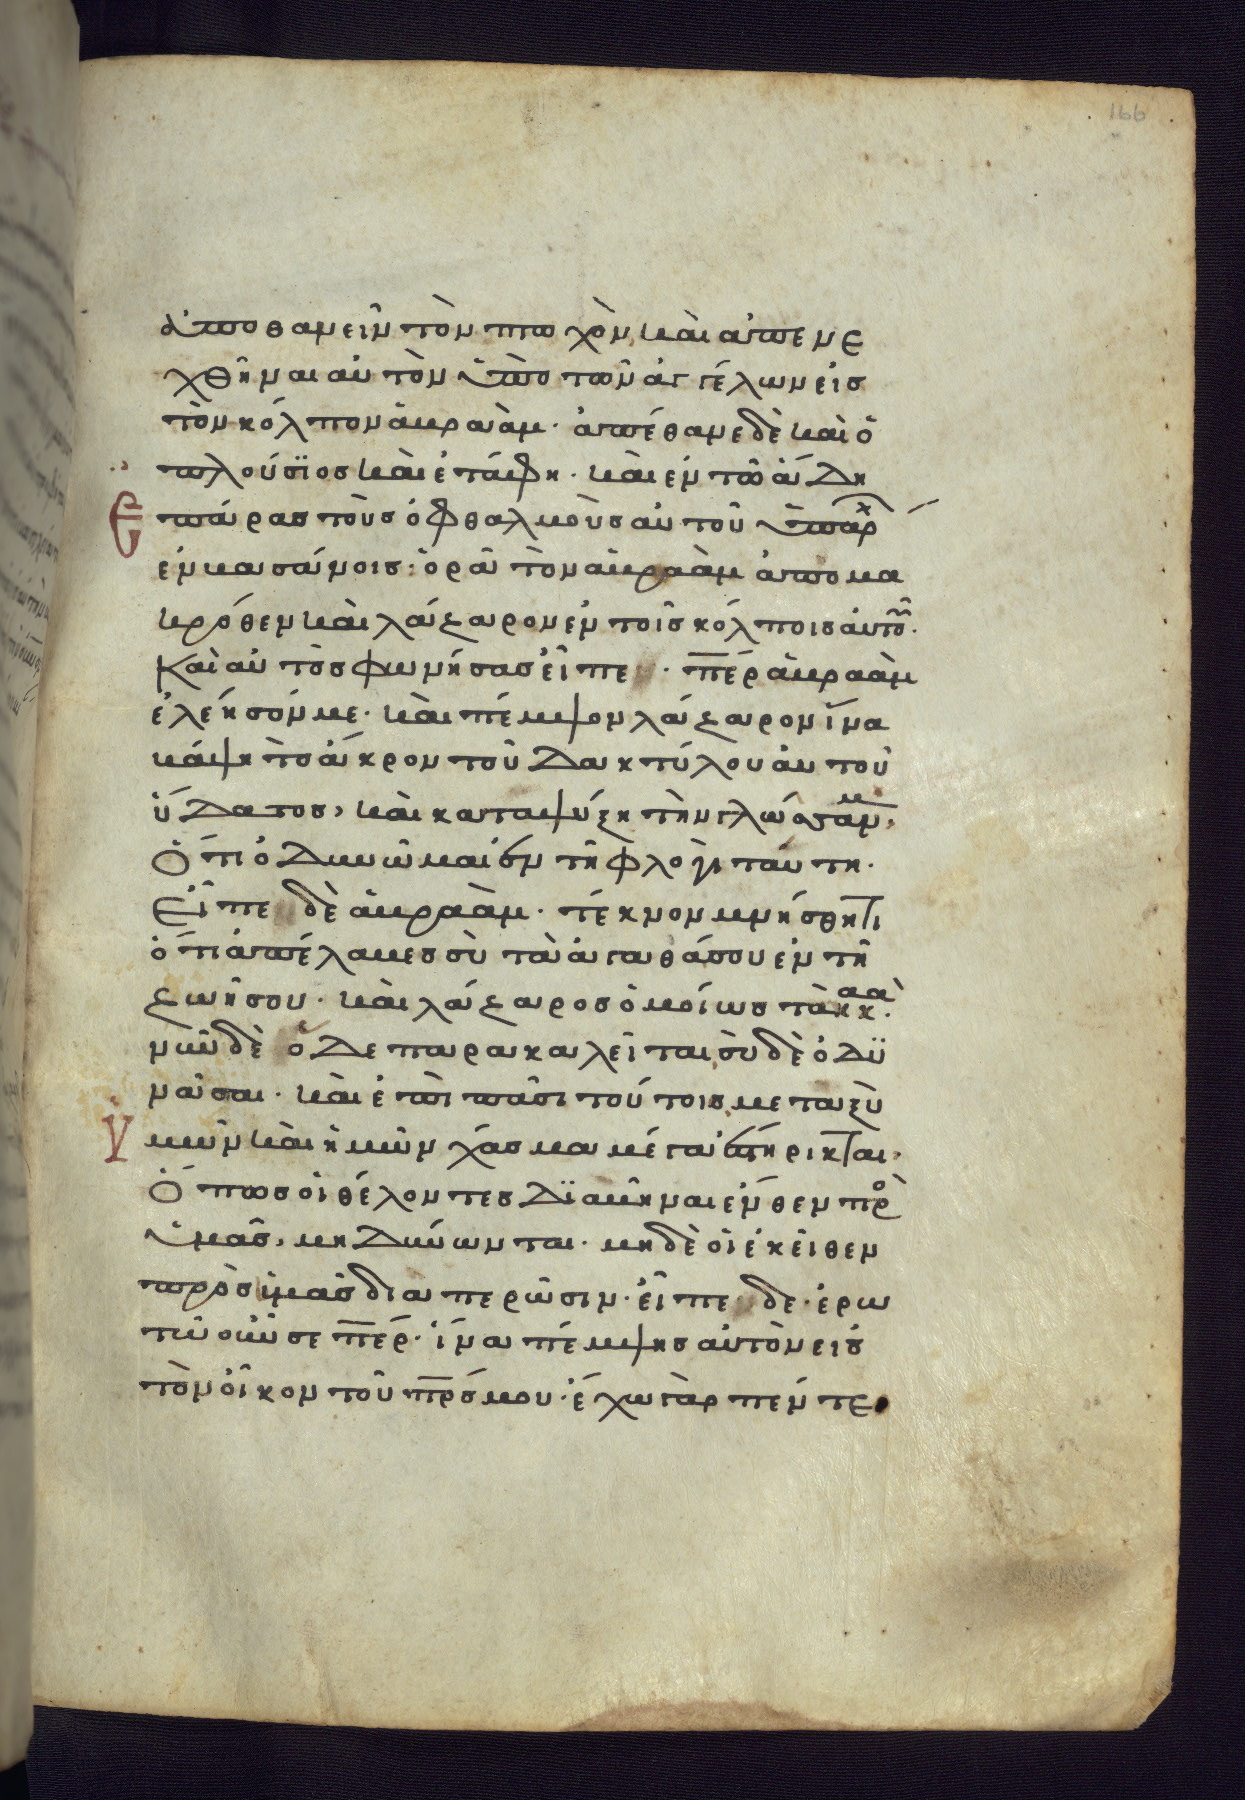 166
ἀποθανεῖν τὸν πτωχὸν καὶ ἀπενε
χθῆναι αὐτὸν ὑπὸ τῶν ἀγγέλων εἰσ
τὸν κόλπον ἀβραὰμ· ἀπέθανε δὲ καὶ ὁ
πλούσϊοσ καὶ ἐτάφη· καὶ ἐν τῶ ἅδη
Ἐπάρασ τοὺσ ὀφθαλμοὺσ αὐτοῦ ὑπάρχ
ἐν βασάνοισ· ὁρᾶ τὸν ἀβραὰμ ἀπὸ μα
κρόθεν καὶ λάζαρον ἐν τοῖσ κόλποισ αὐτοῦ·
Καὶ αὐτὸσ φωνήσασ εἶπε· περ ἀβραὰμ
ἐλέησόν με· καὶ πέμψον λάζαρον ἵνα
βάψη τὸ ἄκρον τοῦ δακτύλου αὐτοῦ
ὕδατοσ, καὶ καταψύξη τὴν γλώσσάν μ,
Ὅτι ὀδυνῶμαι ἐν τῆ φλογὶ ταύτη·
Εἶπε δὲ ἀβραάμ· τέκνον μνήσθητι
ὅτι ἀπέλαβεσ σὺ τὰ ἀγαθά σου ἐν τῆ
ζωῆ σου· καὶ λάζαροσ ὁμοίωσ τὰ κακά·
νῦν δὲ ὧδε παρακαλεῖται σὺ δὲ ὀδϋ
νᾶσαι· καὶ ἐπὶ πᾶσι τούτοισ μεταξὺ
Ὑμῶν καὶ ἡμῶν χάσμα μέγα ἐστήρικται,
Ὅπωσ οἱ θέλοντεσ δϊαβῆναι ἔνθεν πρὸ
ὑμᾶσ, μὴ δύνωνται· μηδὲ οἱ ἐκεῖθεν
πρὸσ ἡμᾶσ διαπερῶσιν· εἶπε δε· ἐρω
τῶ οὖν σε περ· ἵνα πέμψησ αὐτὸν εἰσ
τὸν οἶκον τοῦ πρσ μου· ἔχω γὰρ πέντε